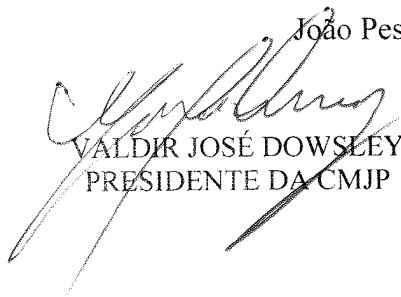 João Pes
VALDIR JOSÉ DOWSLEY
PRESIDENTE DA CMJP